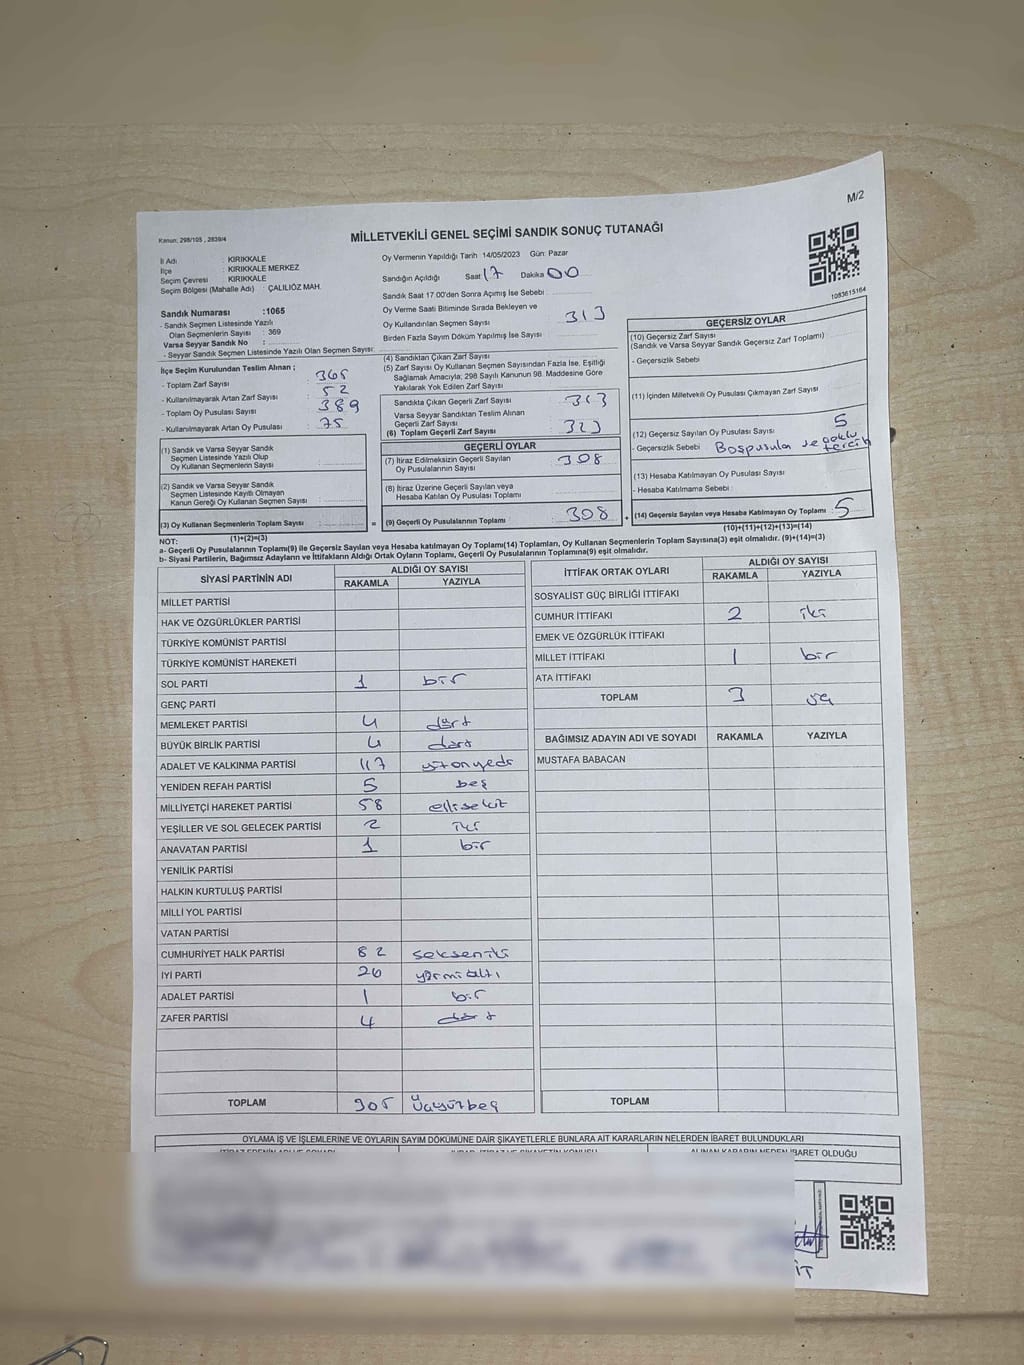 M/2
Kanun: 298/105 , 2839/4
MİLLETVEKİLİ GENEL SEÇİMİ SANDIK SONUÇ TUTANAĞI
İl Adı : KIRIKKALE
İlçe : KIRIKKALE MERKEZ
Seçim Çevresi : KIRIKKALE
Seçim Bölgesi (Mahalle Adı) : ÇALILIÖZ MAH.
Sandık Numarası :1065
- Sandık Seçmen Listesinde Yazılı
Olan Seçmenlerin Sayısı : 369
Varsa Seyyar Sandık No :
- Seyyar Sandık Seçmen Listesinde Yazılı Olan Seçmen Sayısı:
İlçe Seçim Kurulundan Teslim Alınan ;
- Toplam Zarf Sayısı 365
- Kullanılmayarak Artan Zarf Sayısı 52
- Toplam Oy Pusulası Sayısı 389
- Kullanılmayarak Artan Oy Pusulası 75
(1) Sandık ve Varsa Seyyar Sandık
Seçmen Listesinde Yazılı Olup
Oy Kullanan Seçmenlerin Sayısı
(2) Sandık ve Varsa Seyyar Sandık
Seçmen Listesinde Kayıtlı Olmayan
Kanun Gereği Oy Kullanan Seçmen Sayısı
(3) Oy Kullanan Seçmenlerin Toplam Sayısı
(1)+(2)=(3)
Oy Vermenin Yapıldığı Tarih 14/05/2023 Gün: Pazar
Sandığın Açıldığı Saat 17 Dakika 00
Sandık Saat 17.00'den Sonra Açımış İse Sebebi :
Oy Verme Saati Bitiminde Sırada Bekleyen ve
Oy Kullandırılan Seçmen Sayısı 313
Birden Fazla Sayım Döküm Yapılmış İse Sayısı
(4) Sandıktan Çıkan Zarf Sayısı
(5) Zarf Sayısı Oy Kullanan Seçmen Sayısından Fazla İse, Eşitliği
Sağlamak Amacıyla; 298 Sayılı Kanunun 98. Maddesine Göre
Yakılarak Yok Edilen Zarf Sayısı
Sandıkta Çıkan Geçerli Zarf Sayısı 313
Varsa Seyyar Sandıktan Teslim Alınan
Geçerli Zarf Sayısı
(6) Toplam Geçerli Zarf Sayısı 323
GEÇERLİ OYLAR
(7) İtiraz Edilmeksizin Geçerli Sayılan
Oy Pusulalarının Sayısı 308
(8) İtiraz Üzerine Geçerli Sayılan veya
Hesaba Katılan Oy Pusulası Toplamı
= (9) Geçerli Oy Pusulalarının Toplamı 308 +
1083615164
GEÇERSİZ OYLAR
(10) Geçersiz Zarf Sayısı
(Sandık ve Varsa Seyyar Sandık Geçersiz Zarf Toplamı)
- Geçersizlik Sebebi
(11) İçinden Milletvekili Oy Pusulası Çıkmayan Zarf Sayısı
(12) Geçersiz Sayılan Oy Pusulası Sayısı 5
- Geçersizlik Sebebi Boşpusula ve çoklu
tercih
(13) Hesaba Katılmayan Oy Pusulası Sayısı
- Hesaba Katılmama Sebebi :
(14) Geçersiz Sayılan veya Hesaba Katılmayan Oy Toplamı 5
(10)+(11)+(12)+(13)=(14)
NOT:
a- Geçerli Oy Pusulalarının Toplamı(9) İle Geçersiz Sayılan veya Hesaba katılmayan Oy Toplamı(14) Toplamları, Oy Kullanan Seçmenlerin Toplam Sayısına(3) eşit olmalıdır. (9)+(14)=(3)
b- Siyasi Partilerin, Bağımsız Adayların ve İttifakların Aldığı Ortak Oyların Toplamı, Geçerli Oy Pusulalarının Toplamına(9) eşit olmalıdır.
SİYASİ PARTİNİN ADI ALDIĞI OY SAYISI
RAKAMLA YAZIYLA
MİLLET PARTİSİ
HAK VE ÖZGÜRLÜKLER PARTİSİ
TÜRKİYE KOMÜNİST PARTİSİ
TÜRKİYE KOMÜNİST HAREKETİ
SOL PARTİ 1 bir
GENÇ PARTİ
MEMLEKET PARTİSİ 4 dört
BÜYÜK BİRLİK PARTİSİ 4 dört
ADALET VE KALKINMA PARTİSİ 117 yüzonyedi
YENİDEN REFAH PARTİSİ 5 beş
MİLLİYETÇİ HAREKET PARTİSİ 58 ellisekiz
YEŞİLLER VE SOL GELECEK PARTİSİ 2 iki
ANAVATAN PARTİSİ 1 bir
YENİLİK PARTİSİ
HALKIN KURTULUŞ PARTİSİ
MİLLİ YOL PARTİSİ
VATAN PARTİSİ
CUMHURİYET HALK PARTİSİ 82 sekseniki
İYİ PARTİ 26 yirmialtı
ADALET PARTİSİ 1 bir
ZAFER PARTİSİ 4 dört
TOPLAM 305 üçyüzbeş
İTTİFAK ORTAK OYLARI ALDIĞI OY SAYISI
RAKAMLA YAZIYLA
SOSYALİST GÜÇ BİRLİĞİ İTTİFAKI
CUMHUR İTTİFAKI 2 iki
EMEK VE ÖZGÜRLÜK İTTİFAKI
MİLLET İTTİFAKI 1 bir
ATA İTTİFAKI
TOPLAM 3 üç
BAĞIMSIZ ADAYIN ADI VE SOYADI RAKAMLA YAZIYLA
MUSTAFA BABACAN
TOPLAM
OYLAMA İŞ VE İŞLEMLERİNE VE OYLARIN SAYIM DÖKÜMÜNE DAİR ŞİKAYETLERLE BUNLARA AİT KARARLARIN NELERDEN İBARET BULUNDUKLARI
ALINAN KARARIN NEDEN İBARET OLDUĞU